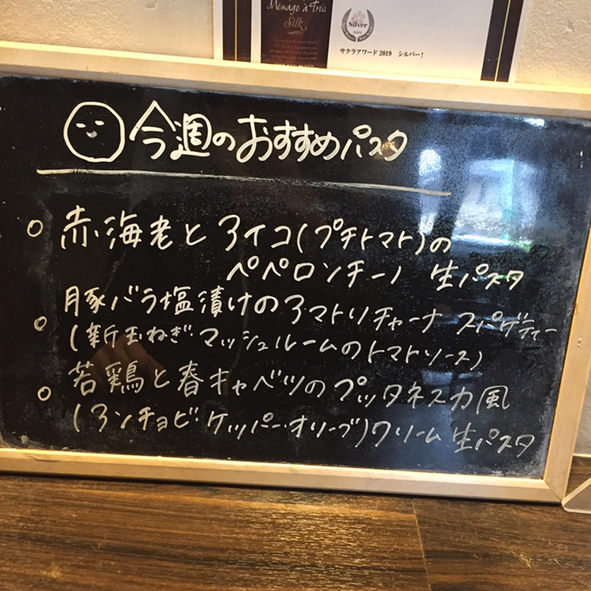 Ménage à Trois
Silk
Silver
2019
サクラアワード2019 シルバー!
今週のおすすめパスタ
赤海老とアイコ(プチトマト)の
ペペロンチーノ 生パスタ
豚バラ塩漬けのアマトリチャーナ スパゲティー
(新玉ねぎマッシュルームのトマトソース)
若鶏と春キャベツのプッタネスカ風
(アンチョビ・ケッパー・オリーブ)クリーム 生パスタ